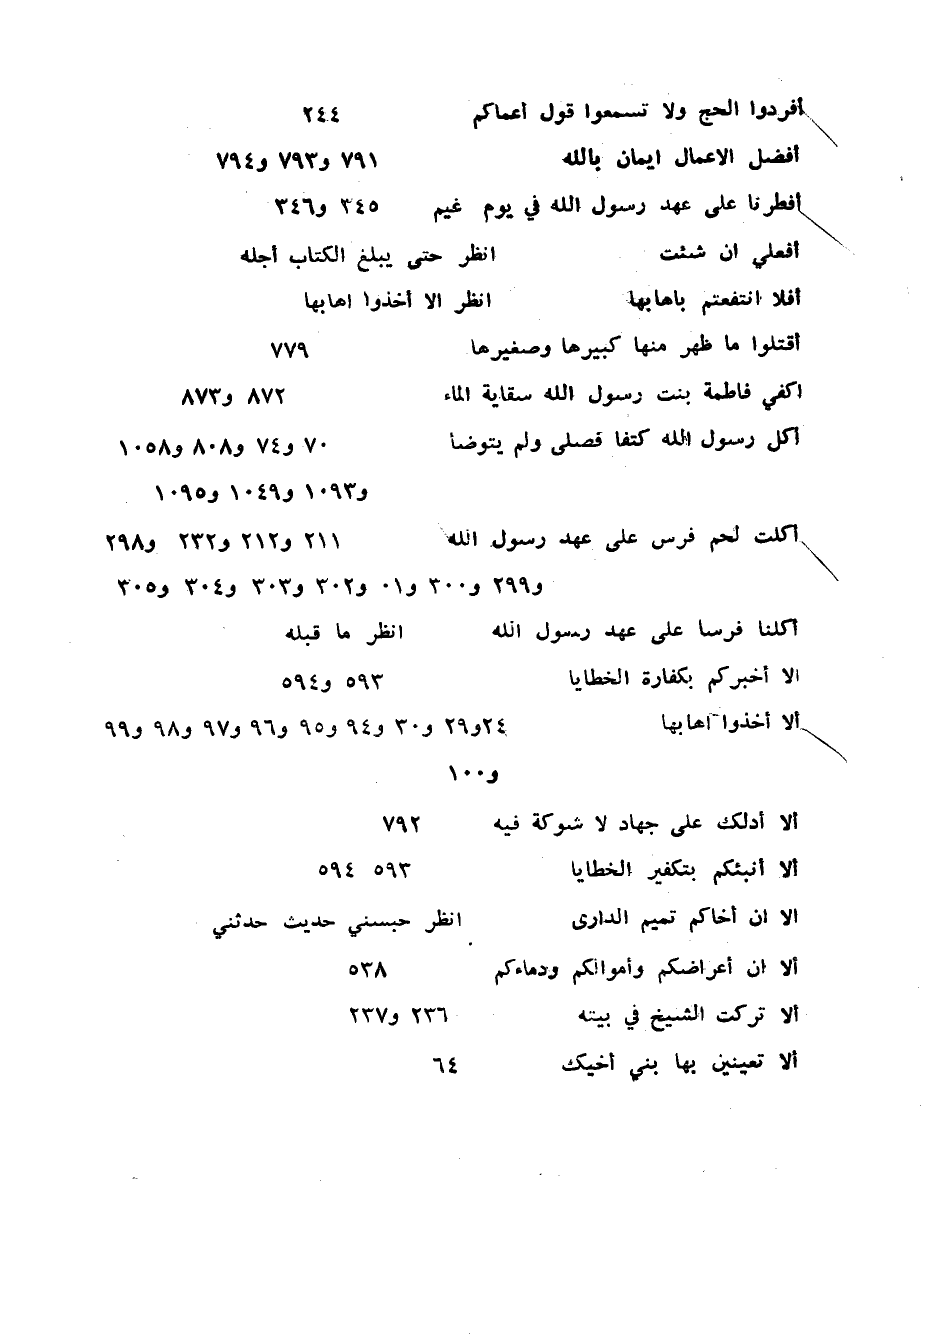 أفردوا الحج ولا تسمعوا قول أعماكم ٢٤٤
أفضل الاعمال ايمان بالله ٧٩١ و٧٩٣ و٧٩٤
أفطرنا على عهد رسول الله في يوم غيم ٣٤٥ و٣٤٦
أفعلي ان شئت انظر حتى يبلغ الكتاب أجله
أفلا انتفعتم باهابها انظر الا أخذوا اهابها
أقتلوا ما ظهر منها كبيرها وصغيرها ٧٧٩
اكفي فاطمة بنت رسول الله سقاية الماء ٨٧٢ و٨٧٣
أكل رسول الله كتفا فصلى ولم يتوضا ٧٠ و٧٤ و٨٠٨ و١٠٥٨
و١٠٩٣ و١٠٤٩ و١٠٩٥
أكلت لحم فرس على عهد رسول الله ٢١١ و٢١٢ و٢٣٢ و٢٩٨
و٢٩٩ و٣٠٠ و٠١ و٣٠٢ و٣٠٣ و٣٠٤ و٣٠٥
أكلنا فرسا على عهد رسول الله انظر ما قبله
الا أخبركم بكفارة الخطايا ٥٩٣ و٥٩٤
ألا أخذوا اهابها ٢٤و٢٩ و٣٠ و٩٤ و٩٥ و٩٦ و٩٧ و٩٨ و٩٩
و١٠٠
ألا أدلك على جهاد لا شوكة فيه ٧٩٢
ألا أنبئكم بتكفير الخطايا ٥٩٣ ٥٩٤
الا ان أخاكم تميم الدارى انظر حبسني حديث حدثني
ألا ان أعراضكم وأموالكم ودماءكم ٥٣٨
ألا تركت الشيخ في بيته ٢٣٦ و٢٣٧
ألا تعينين بها بني أخيك ٦٤